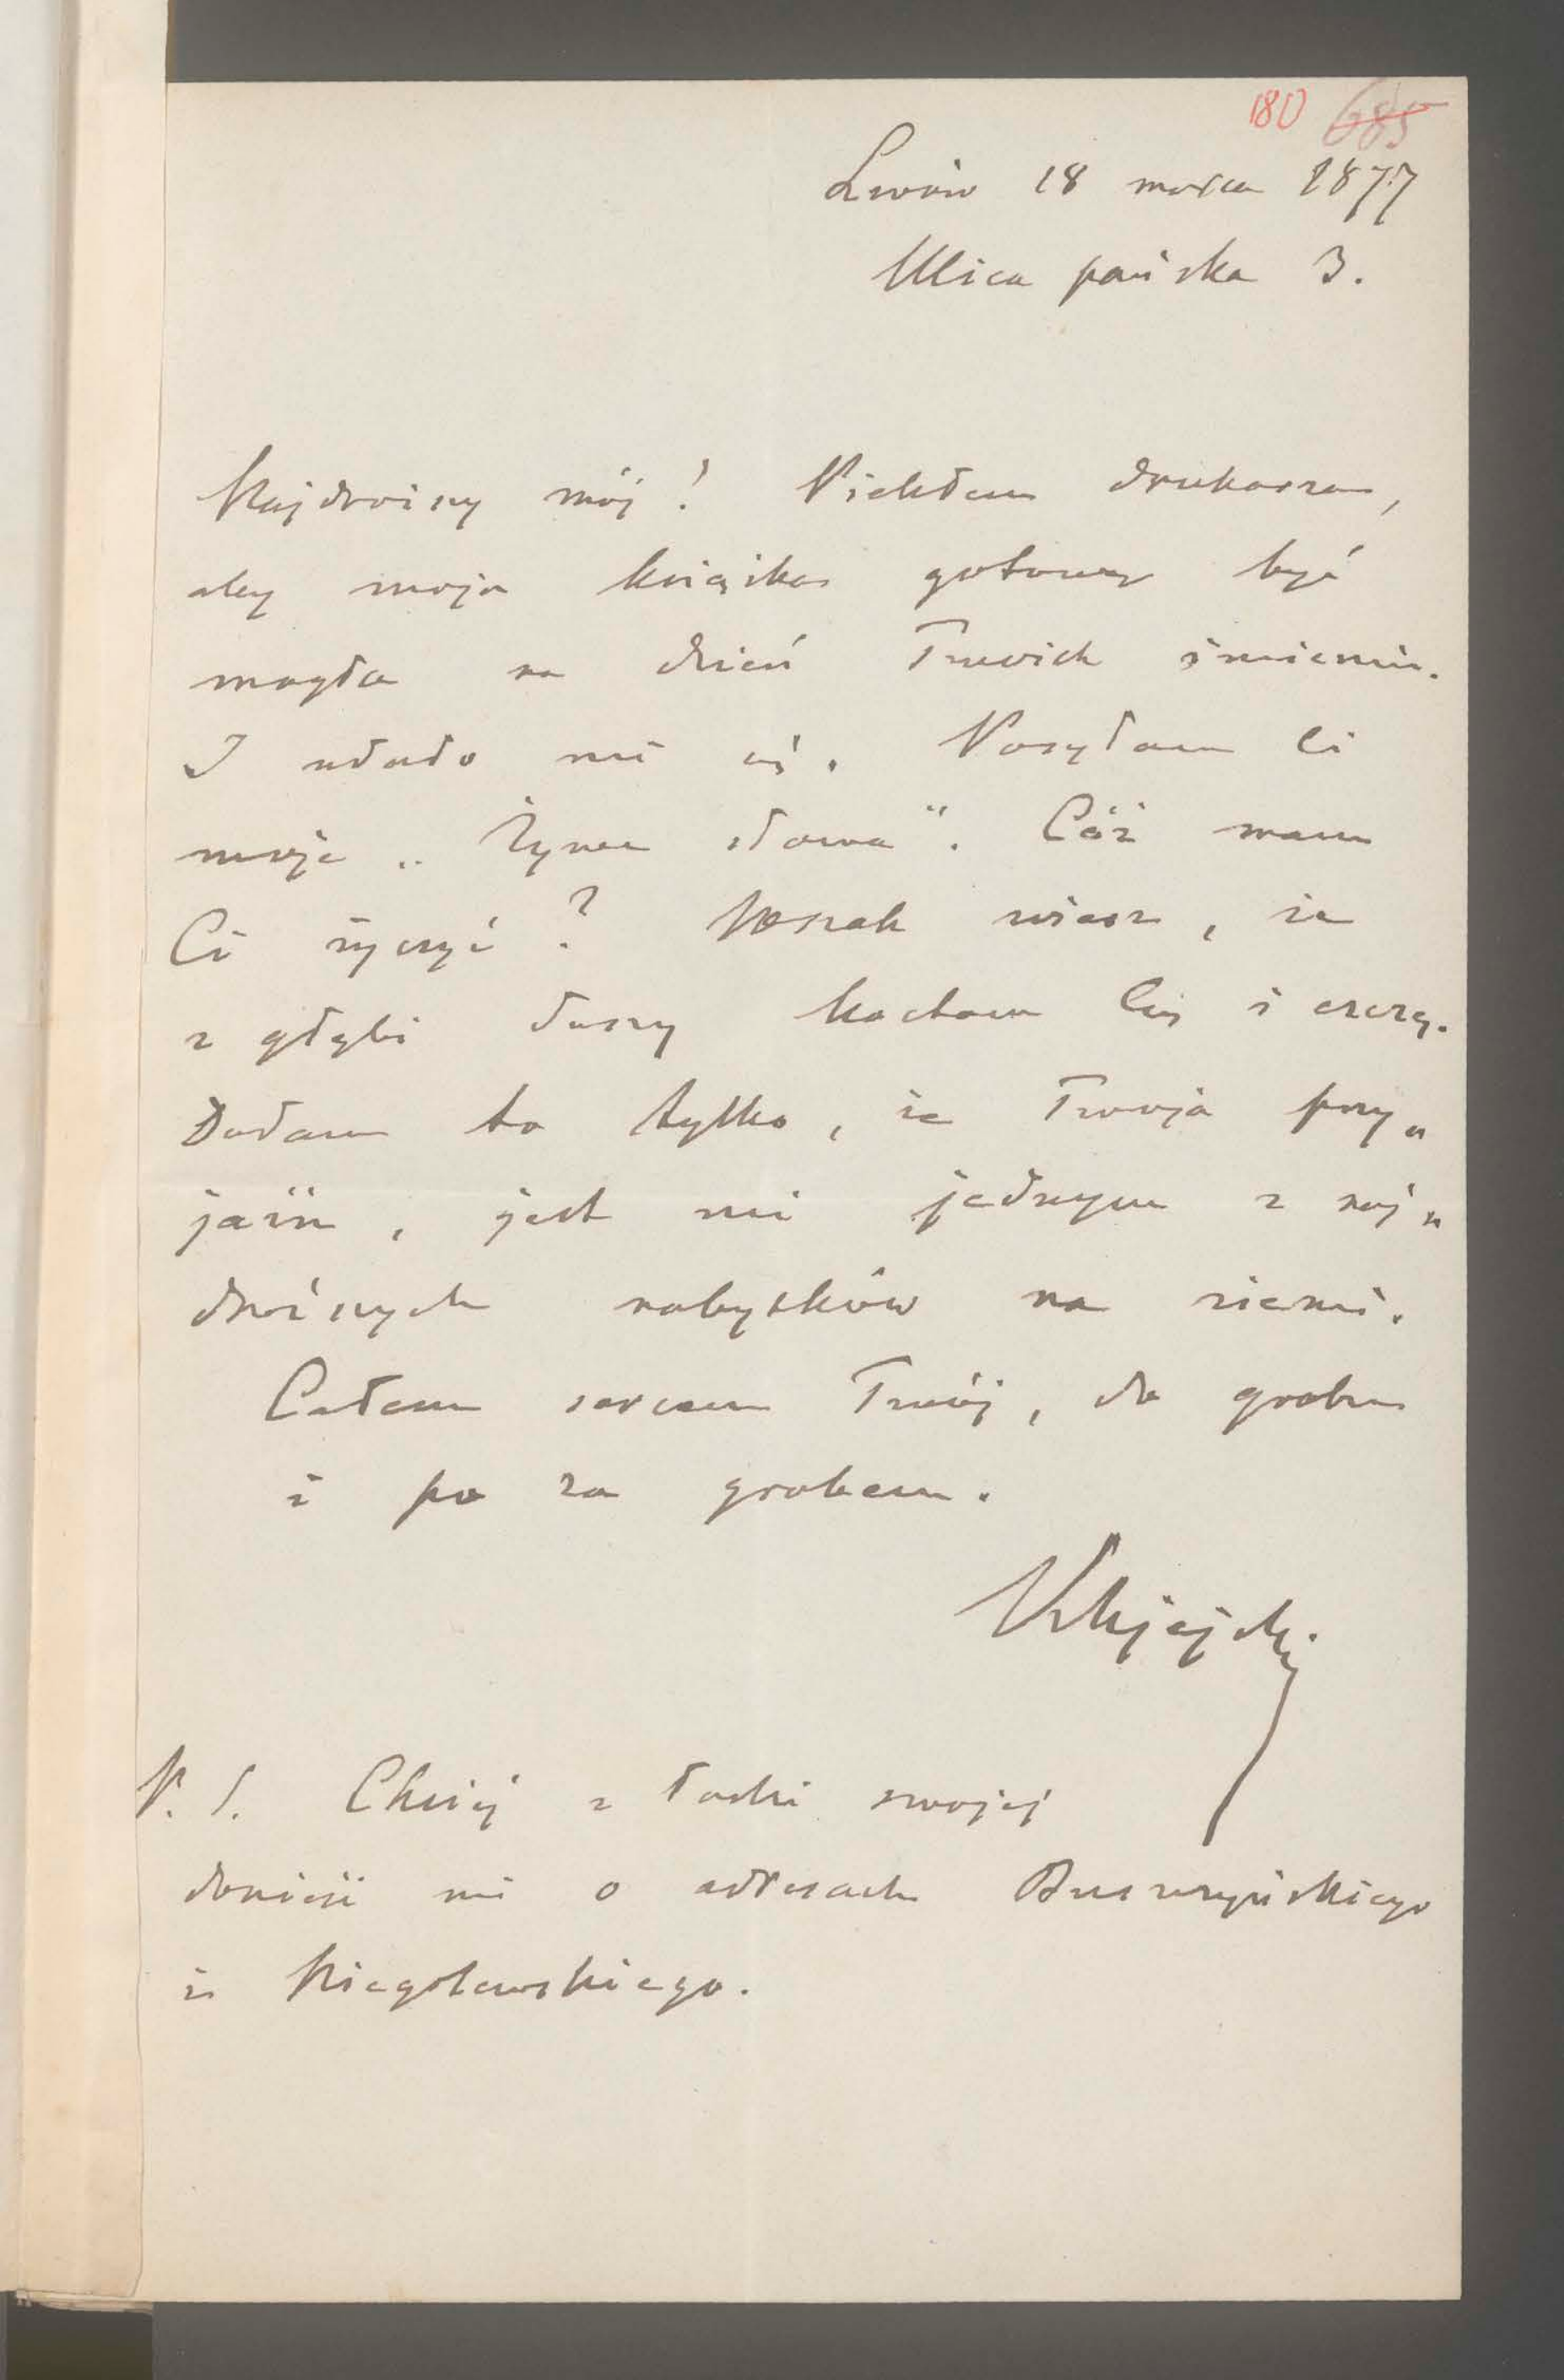 180 685
Lwów 18 marca 1877
Ulica pańska 3.
Najdroższy mój! Piekłem drukarza,
aby moja książka gotową być
mogła na dzień Twoich imienin.
I udało mi się. Posyłam Ci
moje „Żywe słowa”. Cóż mam
Ci życzyć? Wszak wiesz, że
z głębi duszy kocham Cię i czczę.
Dodam to tylko, że Twoja przy„
jaźń, jest mi jednym z naj„
droższych nabytków na ziemi.
Całem sercem Twój, do grobu
i po za grobem.
KUjejski
P. S. Chciej z łaski swojej
donieść mi o adresach Buszczyńskiego
i Niegolewskiego.